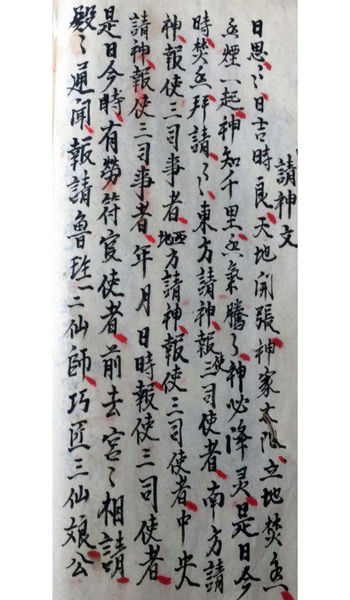 請神文
日思〻日吉時良天地開張神家大立地焚香
香煙一起神知千里香氣騰〻神必降灵是日今
時焚香拜請〻〻東方請神報使三司使者南方請
神報使三司事者西地方請神報使三司使者中央
請神報使三司事者年月日時報使三司使者
是日今時有勞符官使者前去宮〻相請
殿〻通聞報請魯班一二仙師巧匠三仙娘公